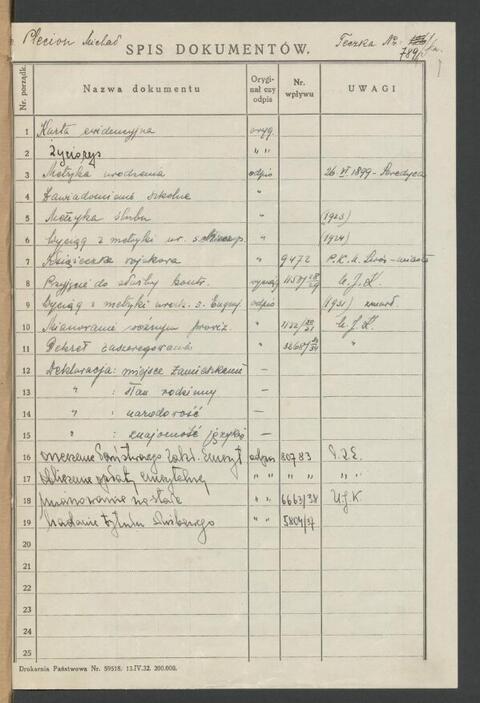 Plecion Michał
Teczka Nr. 789
SPIS DOKUMENTÓW.
Nr. porządk. Nazwa dokumentu Orygi- nał czy odpis Nr. wpływu UWAGI
1 Karta ewidencyjna oryg.
2 Życiorys " "
3 Metryka urodzenia odpis 26 VI 1899 -
4 szkolne "
5 Metryka ślubu " (1923)
6 Wyciąg z metryki ur. s. " (1924)
7 Książeczka wojskowa " 9472 P.K.U. Lwów - miasto
8 Przyjęcie do służby kontr. U.J.K.
9 Wyciąg z metryki urodz. s. Eugenj. odpis (1931)
10 Mianowanie woźnym prowiz. " 1122/ U.J.K.
11 Dekret zaszeregowania " "
12 Deklaracja: miejsce zamieszkania —
13 " : stan rodzinny —
14 " : narodowość —
15 " : znajomość języków —
16 Państwowego Zakł. Emeryt. odpis 80783
17 emerytalnej " " " "
18 mianowanie na stałe " " 6663/38 UJK
19 Nadanie tytułu służbowego " " 5804/37
20
21
22
23
24
25
Drukarnia Państwowa Nr. 59518. 13.IV.32. 200.000.